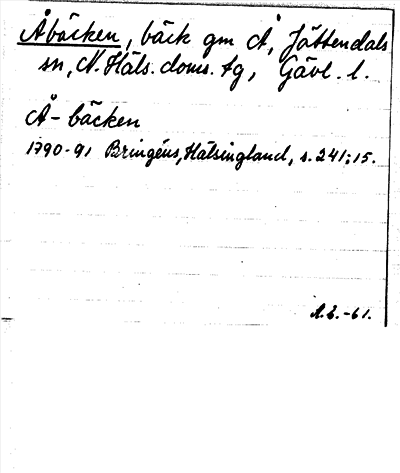 Åbäcken, bäck gm Å, Jättendals
sn, N. Häls. doms. tg, Gävl. l.
Å-bäcken
1790-91 Bringéus, Hälsingland, s. 241; 15.
-61.